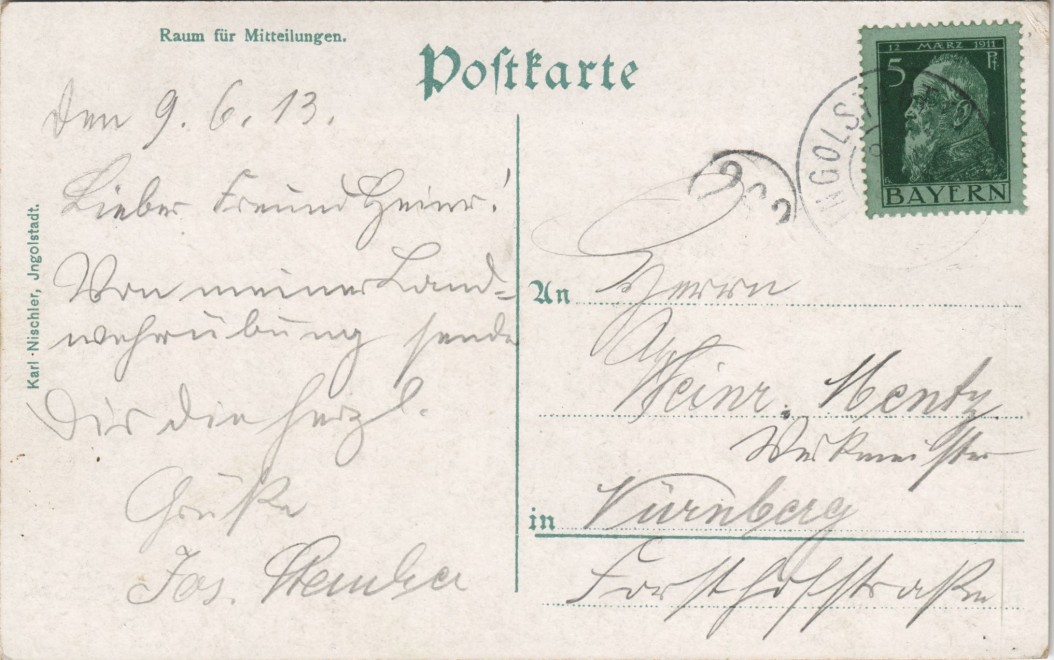 Raum für Mitteilungen.
Postkarte
12 MÄRZ 1911
5 Pf
BAYERN
INGOLST
Karl Nischler, Jngolstadt.
Den 9. 6. 13.
Lieber Freund Heinr!
Von meiner Land-
wehrübung sende
Dir die herzl.
Grüße
Jos.
An Herrn
Heinr. Mentz
Werkmeister
in Nürnberg
Forsthofstraße